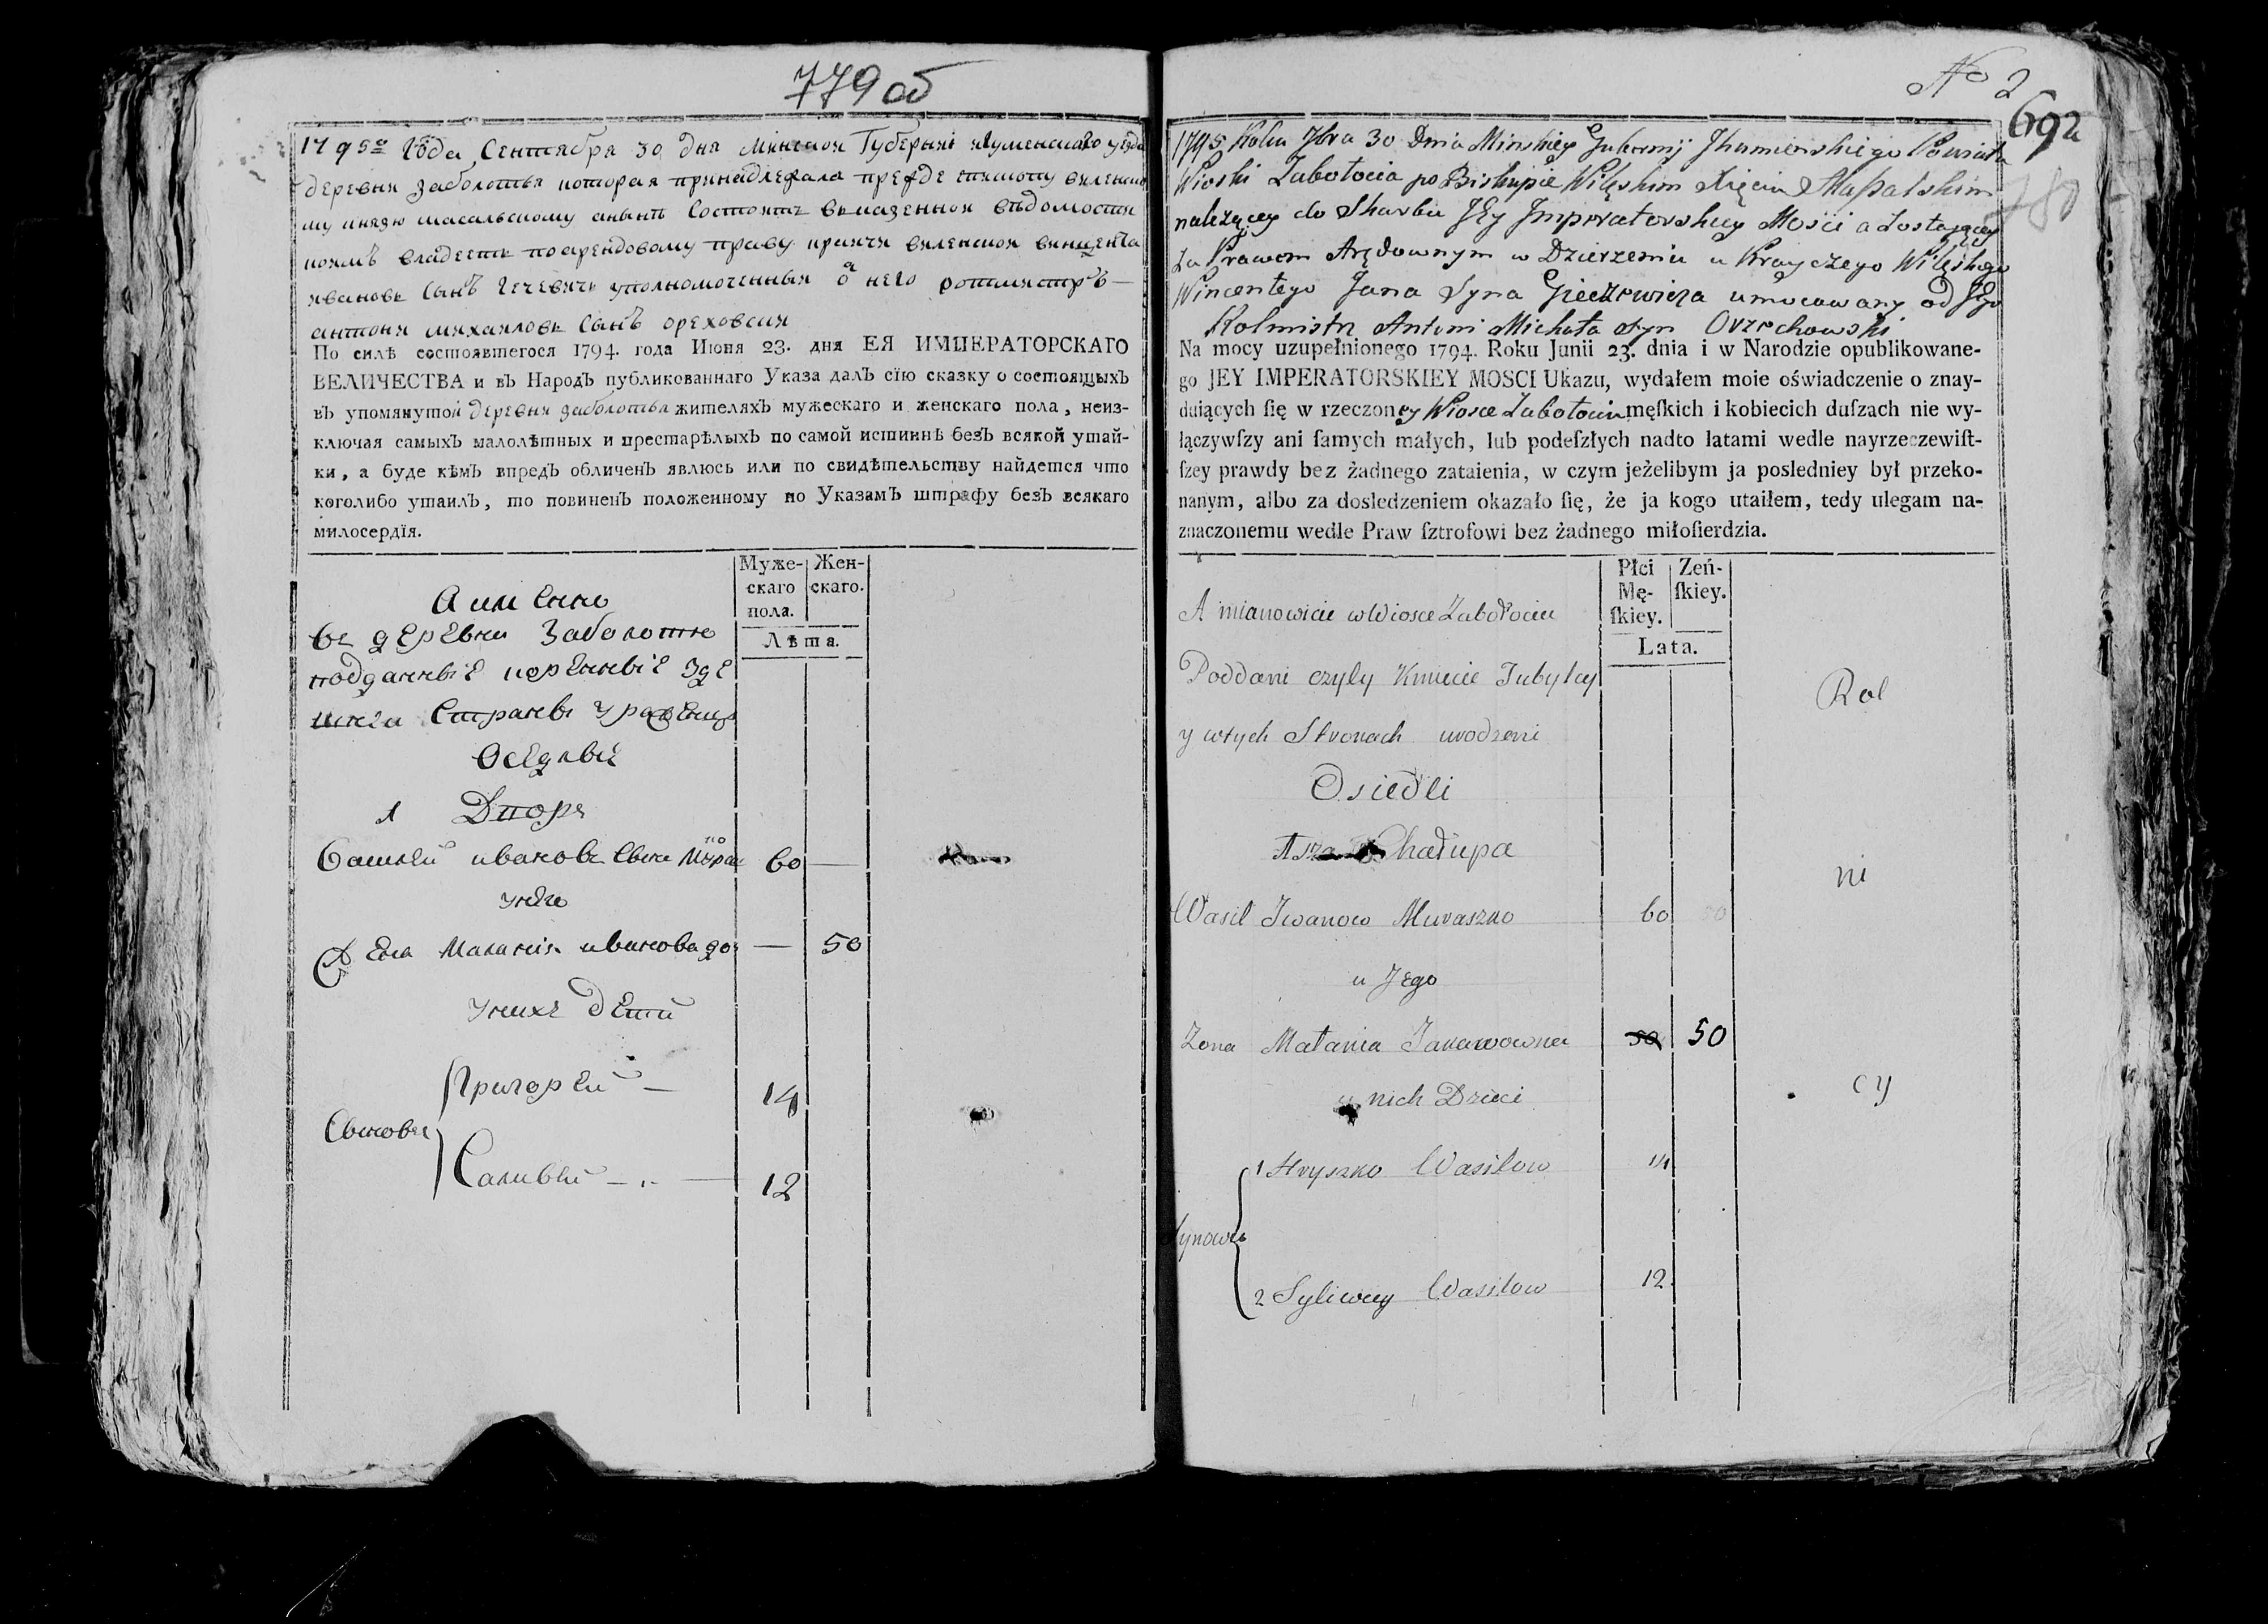 779 об
1795го Года Сентября 30 дня Минской Губерніи игуменскаго уезда
деревни Заболотья которая принадлежала прежде епископу виленско
му князю масальскому анынѣ Состоитъ вказенной вѣдомости
коимъ владеетъ поарендовому праву крайчи виленской винцента
ивановъ Сынъ Гечевичъ уполномоченный о него ротмистръ
антони михаиловъ Сынъ ореховски
По силѣ состоявшегося 1794. года Июня 23. дня ЕЯ ИМПЕРАТОРСКАГО
ВЕЛИЧЕСТВА и въ Народъ публикованнаго Указа далъ сїю сказку о состоящыхъ
въ упомянутой деревни заболотья жителяхъ мужескаго и женскаго пола, неиз-
ключая самыхъ малолѣтныхъ и престарѣлыхъ по самой истиннѣ безъ всякой утай-
ки, а буде кѣмъ впредъ обличенъ явлюсь или по свидѣтельству найдется что
коголибо утаилъ, то повиненъ положенному по Указамъ штрафу безъ всякаго
милосердїя.
Муже-
скаго
пола.
Жен-
скаго.
Лѣта.
А именно
въ деревни Заболотю
подданные коренные зде
шнги Страны урaженцы
Оседлые
1 Дворъ
Василей ивановъ Сынъ Мурашко 60 —
унего
Жена Маланія иванова до — 50
унихъ дети
Сыновья
Григорей — 14
Саливей — 12
No 2
692
780
1795 Roku 7bra 30 Dnia Minskiey Gubernij Jhumienskiego Powiatu
Wioski Zabołocia po Biskupie Wileskim Xięciu Massalskim
należącey do Skarbu JEy Jmperatorskiey Mości a zostającey
za Prawem Arędownym w Dzierzeniu u Krayczego Wileskego
Wincentego Jana Syna Gieczewicza umocowany od Jego
Rotmistrz Antoni Michała Syn Orzechowski
Na mocy uzupełnionego 1794. Roku Junii 23. dnia i w Narodzie opublikowane-
go JEY IMPERATORSKIEY MOSCI Ukazu, wydałem moie oświadczenie o znay-
duiących ſię w rzeczoney Wiosce Zabołociu męſkich i kobiecich duſzach nie wy-
łączywſzy ani ſamych małych, lub podeſzłych nadto latami wedle nayrzeczewiſt-
ſzey prawdy bez żadnego zataienia, w czym jeżelibym ja posledniey był przeko-
nanym, albo za dosledzeniem okazało ſię, że ja kogo utaiłem, tedy ulegam na-
znaczonemu wedle Praw ſztrofowi bez żadnego miłoſierdzia.
Płci
Mę-
ſkiey.
Zeń-
ſkiey.
Lata.
A mianowicie w Wiosce Zabołociu
Poddani czyly Kmiecie Tubylcy
y wtych Stronach urodzeni
Osiedli
1sza Chałupa
Wasil Jwanow Muraszko 60
u Jego
Zona Małania Janawowna 50 50
u nich Dzieci
Synowie
1 Hryszko Wasilow 14
2 Syliwey Wasilow 12
Rol
ni
cy